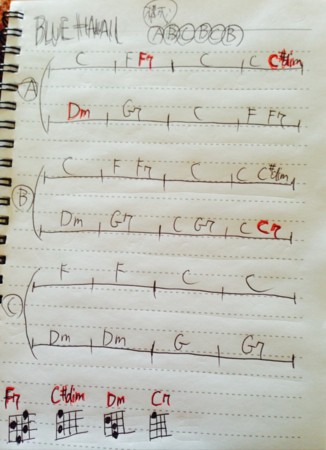 BLUE HAWAII
ⒶⒷⒸⒷⒸⒷ
C F F7 C C C#dim
Ⓐ
Dm G7 C F F7
C F F7 C C C#dim
Ⓑ
Dm G7 C G7 C C7
F F C C
Ⓒ
Dm Dm G G7
F7 C#dim Dm C7